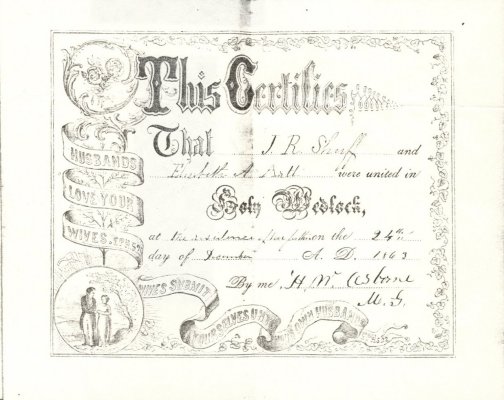 This Certifies
That J R and
Elizabeth A were united in
Holy Wedlock,
at the residence on the 24th
day of A. D. 1863
By me, H Mc Osborne
M. G.
HUSBANDS
LOVE YOUR
WIVES. EPH 5:25
WIVES SUBMIT
YOURSELVES UNTO
YOUR OWN HUSBANDS